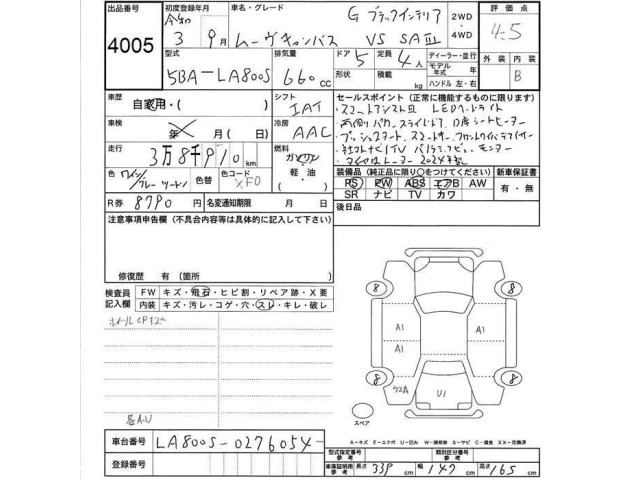 出品番号 4005
初度登録年月 令和 3 9月
車名・グレード G ブラックインテリア
ムーヴキャンバス VS SAⅢ
2WD・4WD
評価点 4.5
型式 5BA-LA800S
排気量 660 cc
ドア形状 5
定員 4人
積載 kg
ディーラー・並行
モデル年式 年
ハンドル 左・右
外装 内装 B
車歴 自家用・( )
シフト IAT
車検 年 月 ( 日)
冷房 AAC
走行 3万8千910 km
燃料 ガソリン 軽・油 ( )
色 ワイン/グレーツートン
色替
色コード XF0
R券 8790 円
名変通知期限 月 日
セールスポイント (正常に機能するものに限ります)
・スマートアシストⅢ LEDヘッドライト
両側パワースライドドア D席シートヒーター
プッシュスタート スマートキー
社外ナビ TV モニター
2024年製
装備品 (純正品に限り○をつけてください)
新車保証書
PS PW ABS エアB AW
SR ナビ TV カワ
有・無
後日品
注意事項申告欄 (不具合内容等は具体的に記入して下さい)
修復歴 有 (箇所 )
検査員記入欄
FW キズ・飛石・ヒビ割・リペア跡・X要
内装 キズ・汚レ・コゲ・穴・スレ・キレ・破レ
各A・U
8 8
A1 A1
A1
8 8
クスA U1
スペア
A－キズ E－エクボ U－凹み W－補修跡 S－サビ C－腐食 XX－交換済
車台番号 LA800S-0276054
登録番号
型式指定番号 参考
類別区分番号 参考
車庫証明用 参考 長さ 339 cm 幅 147 cm 高さ 165 cm